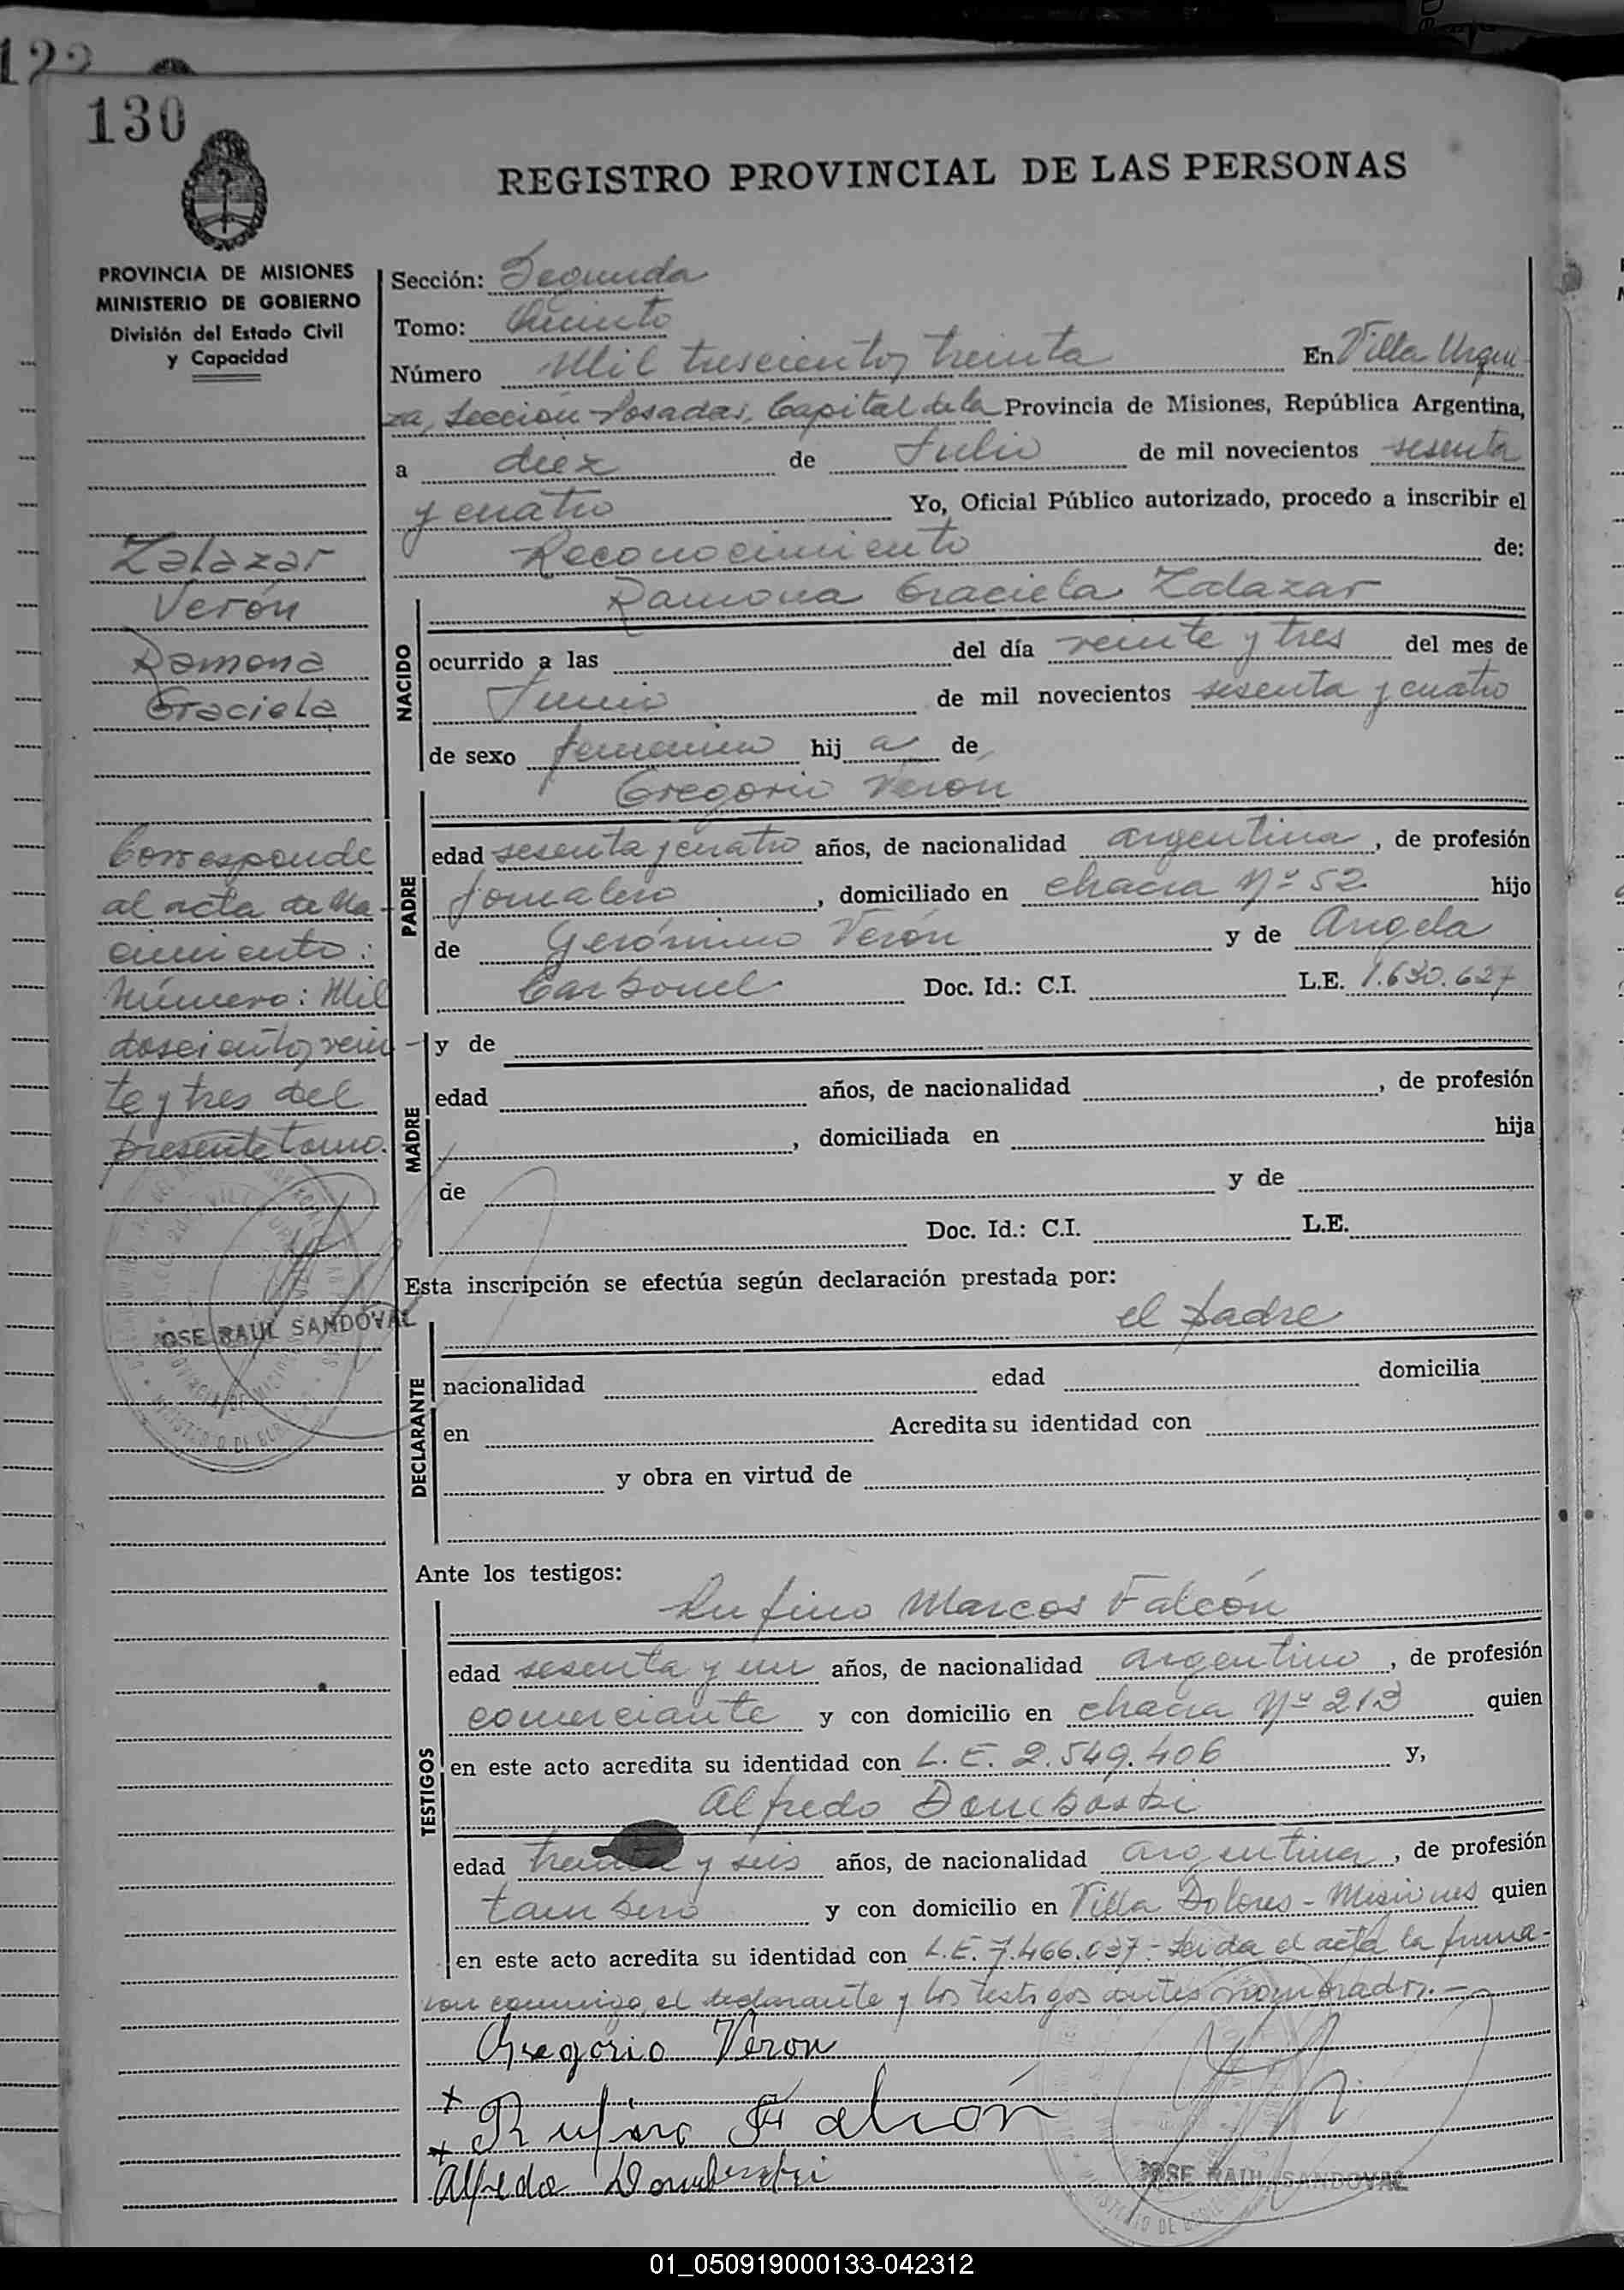 122
130
REGISTRO PROVINCIAL DE LAS PERSONAS
PROVINCIA DE MISIONES
MINISTERIO DE GOBIERNO
División del Estado Civil
y Capacidad
Zalazar
Verón
Ramona
Graciela
Corresponde
al acta de Na-
cimiento:
Número: Mil
doscientos vein-
te y tres del
presente tomo.
JOSE RAUL SANDOVAL
Sección: Segunda
Tomo: Quinto
Número Mil trescientos treinta En Villa Urqui-
za, Sección Posadas, Capital de la Provincia de Misiones, República Argentina,
a diez de Julio de mil novecientos sesenta
y cuatro Yo, Oficial Público autorizado, procedo a inscribir el
Reconocimiento de:
NACIDO
Ramona Graciela Zalazar
ocurrido a las del día veinte y tres del mes de
Junio de mil novecientos sesenta y cuatro
de sexo femenino hij a de
PADRE
Gregorio Verón
edad sesenta y cuatro años, de nacionalidad argentina, de profesión
jornalero, domiciliado en chacra Nº 52 hijo
de Gerónimo Verón y de Angela
Carbonel Doc. Id.: C.I. L.E. 1.630.627
MADRE
y de
edad años, de nacionalidad , de profesión
, domiciliada en hija
de y de
Doc. Id.: C.I. L.E.
Esta inscripción se efectúa según declaración prestada por:
DECLARANTE
el padre
nacionalidad edad domicilia
en Acredita su identidad con
y obra en virtud de
Ante los testigos:
TESTIGOS
Rufino Marcos Falcón
edad sesenta y un años, de nacionalidad argentino, de profesión
comerciante y con domicilio en chacra Nº 213 quien
en este acto acredita su identidad con L.E. 2.549.406 y,
Alfredo Domboski
edad treinta y seis años, de nacionalidad argentina, de profesión
tambero y con domicilio en Villa Dolores - Misiones quien
en este acto acredita su identidad con L.E. 7.466.037 - Leida el acta la firma-
ron conmigo, el declarante y los testigos antes nombrados.-
Gregorio Veron
x Rufino F Falcón
x Alfredo
JOSE RAUL SANDOVAL
01_050919000133-042312